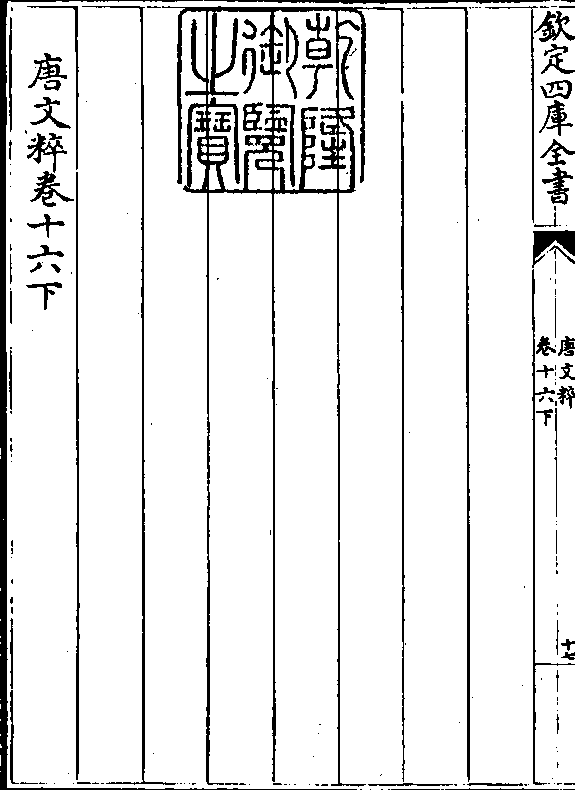 欽定四庫全書
唐文粹
卷十六下
十七
乾隆
御覽
之寶
唐文粹卷十六下